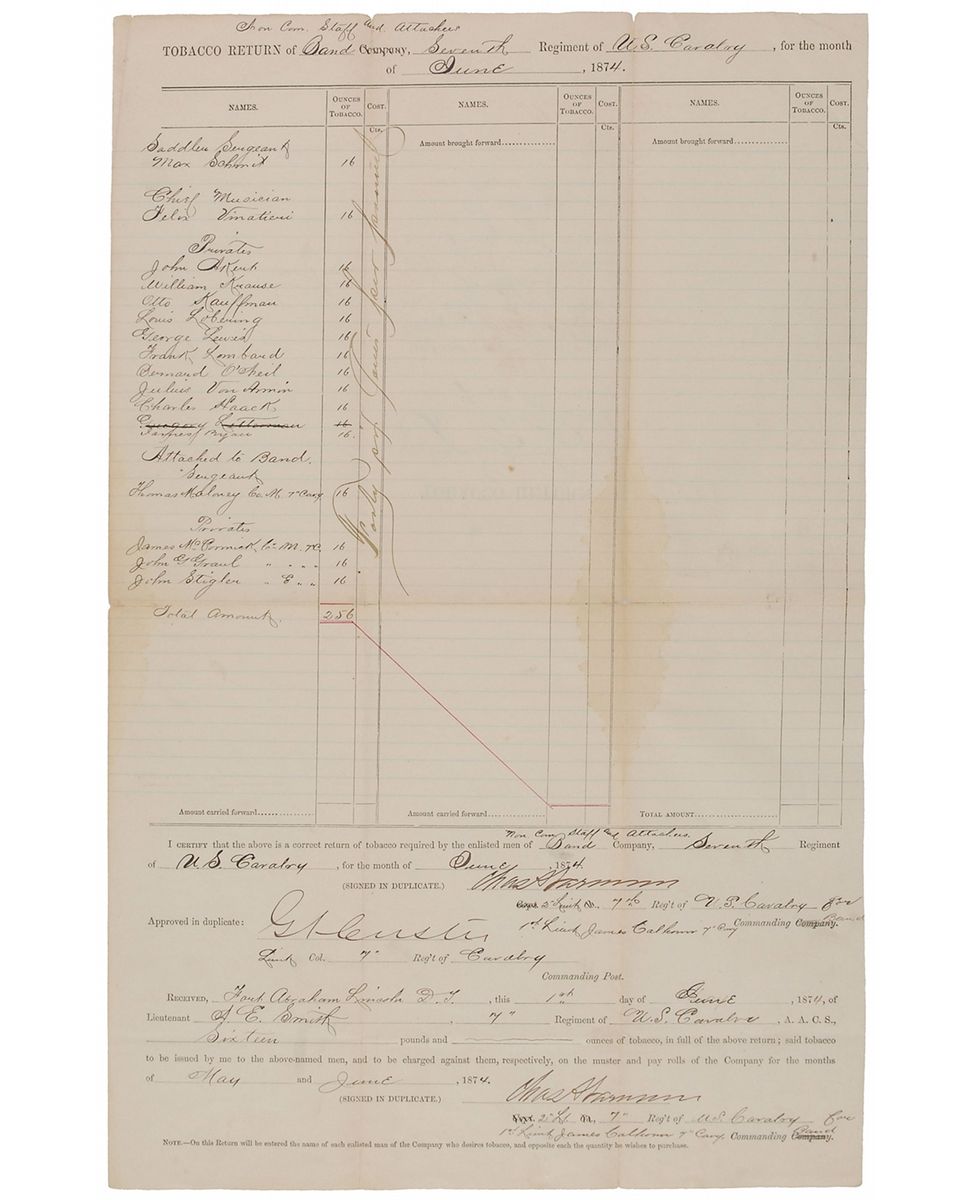 Non Com. Staff and Attaches
TOBACCO RETURN of Band Company, Seventh Regiment of U.S. Cavalry, for the month
of June, 1874.
NAMES. OUNCES OF TOBACCO. COST. NAMES. OUNCES OF TOBACCO. COST. NAMES. OUNCES OF TOBACCO. COST.
Cts. Cts. Cts.
Amount brought forward Amount brought forward
Saddler Sergeant
Max Schmit 16
Chief Musician
Felix Vinatieri 16
Privates
John 16
William Krause 16
Otto Kauffman 16
Louis Lobering 16
George Lewis 16
Frank Lombard 16
Bernard O'Neil 16
Julius Von Armin 16
Charles Haack 16
Gregory Letterman 16
James Bryan 16.
Attached to Band.
Sergeant
Thomas Maloney Co. M. 7" Cavy 16
Privates
James McCormick Co. M. 7"C. 16
John G Graul " " " " 16
John Stigler " E " " 16
Total Amount. 256
Amount carried forward Amount carried forward TOTAL AMOUNT
Non Com. Staff and Attaches
I CERTIFY that the above is a correct return of tobacco required by the enlisted men of Band Company, Seventh Regiment
of U.S Cavalry, for the month of June, 1874.
(SIGNED IN DUPLICATE.) Chas A Varnum
Capt. 2d Lieut Co. 7th Reg't of U.S. Cavalry For
1st Lieut James Calhoun 7" Cavy Commanding Company. Band
Approved in duplicate: G A Custer
Lieut Col. 7" Reg't of Cavalry
Commanding Post.
RECEIVED, Fort Abraham Lincoln D.T., this 1st day of June, 1874, of
Lieutenant A. E. Smith, 7" Regiment of U.S. Cavalry, A. A. C. S.,
Sixteen pounds and ounces of tobacco, in full of the above return; said tobacco
to be issued by me to the above-named men, and to be charged against them, respectively, on the muster and pay rolls of the Company for the months
of May and June, 1874.
(SIGNED IN DUPLICATE.) Chas A Varnum
Capt. 2d Lt Co. 7" Reg't of U.S. Cavalry For
1st Lieut James Calhoun 7" Cavy. Commanding Company. Band
NOTE.—On this Return will be entered the name of each enlisted man of the Company who desires tobacco, and opposite each the quantity he wishes to purchase.